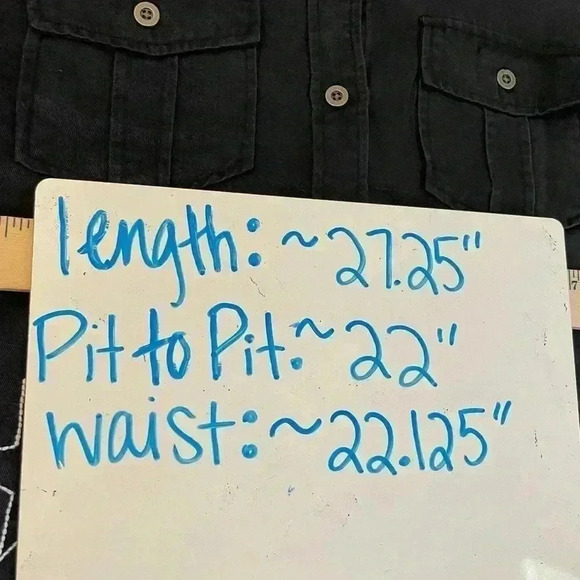 length: ~27.25"
Pit to Pit: ~22"
waist: ~22.125"